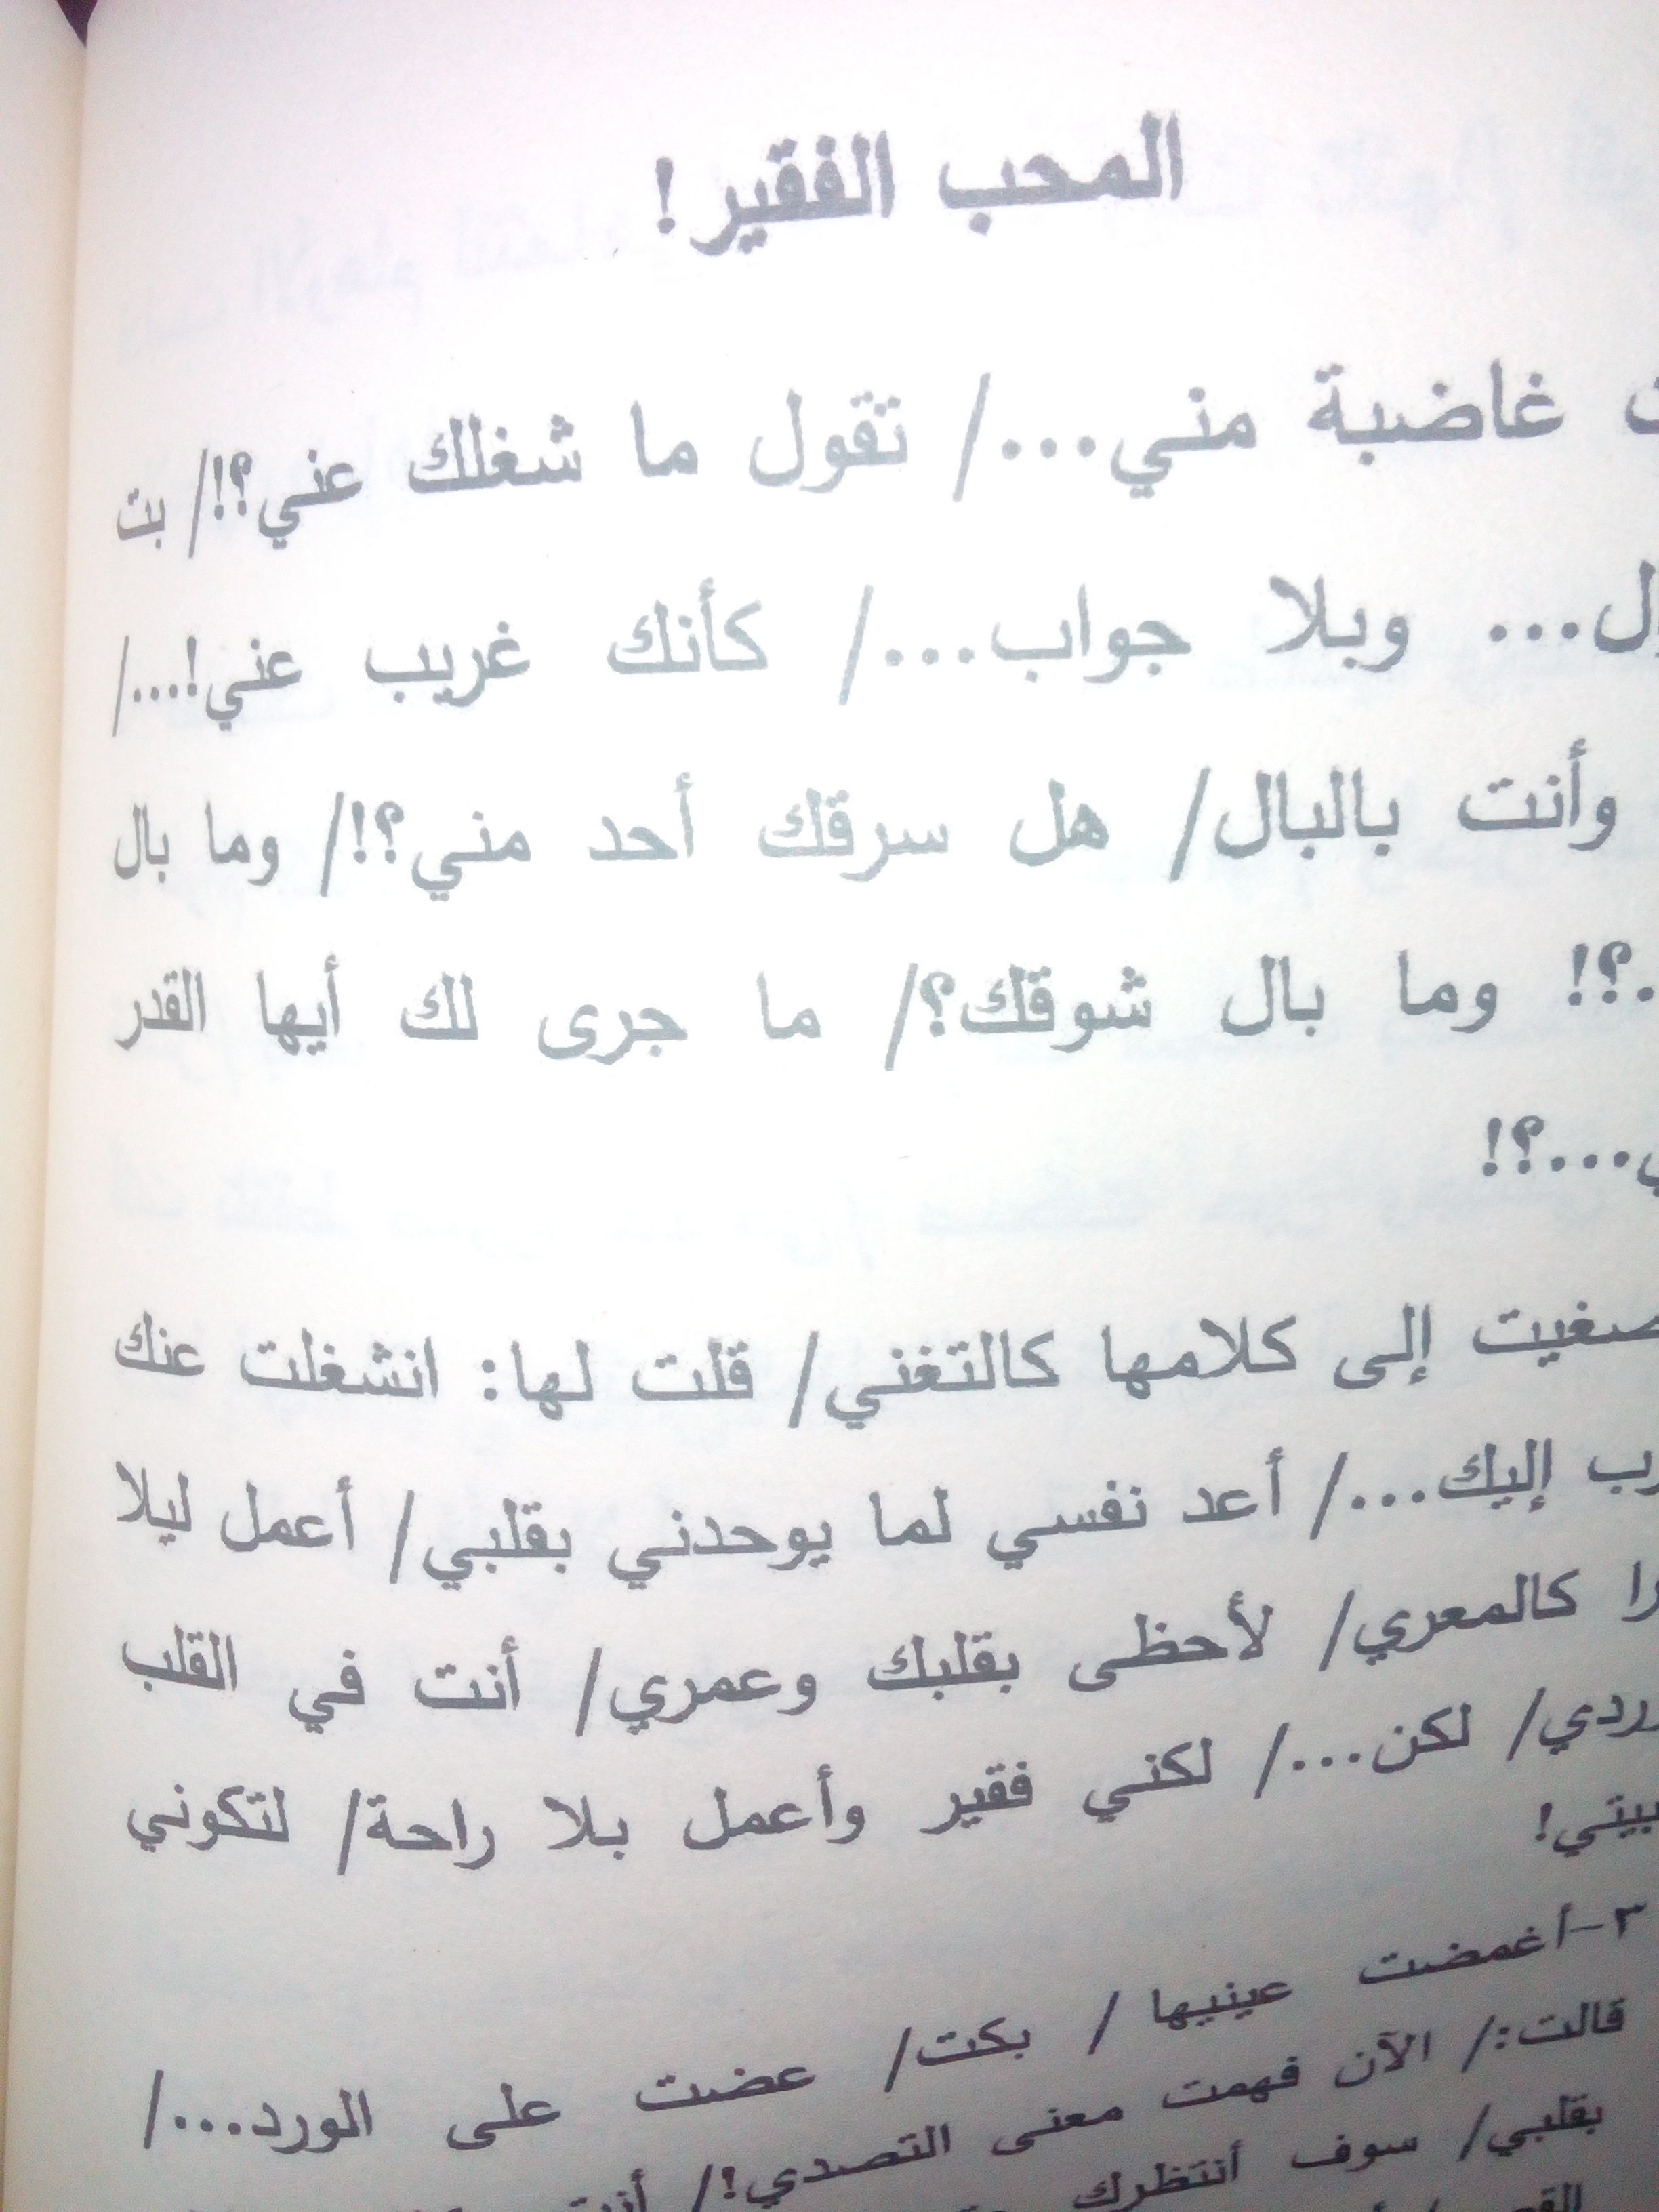 المحب الفقير!
غاضبة مني.../ تقول ما شغلك عني؟!/ بت
... وبلا جواب.../ كأنك غريب عني!.../
وأنت بالبال/ هل سرقك أحد مني؟!/ وما بال
؟! وما بال شوقك؟/ ما جرى لك أيها القدر
...؟!
إلى كلامها كالتغني/ قلت لها: انشغلت عنك
إليك.../ أعد نفسي لما يوحدني بقلبي/ أعمل ليلا
كالمعري/ لأحظى بقلبك وعمري/ أنت في القلب
لكن.../ لكني فقير وأعمل بلا راحة/ لتكوني
٣-أغمضت عينيها / بكت/ عضت على الورد.../
قالت:/ الآن فهمت معنى التصدي!/
بقلبي/ سوف أنتظرك